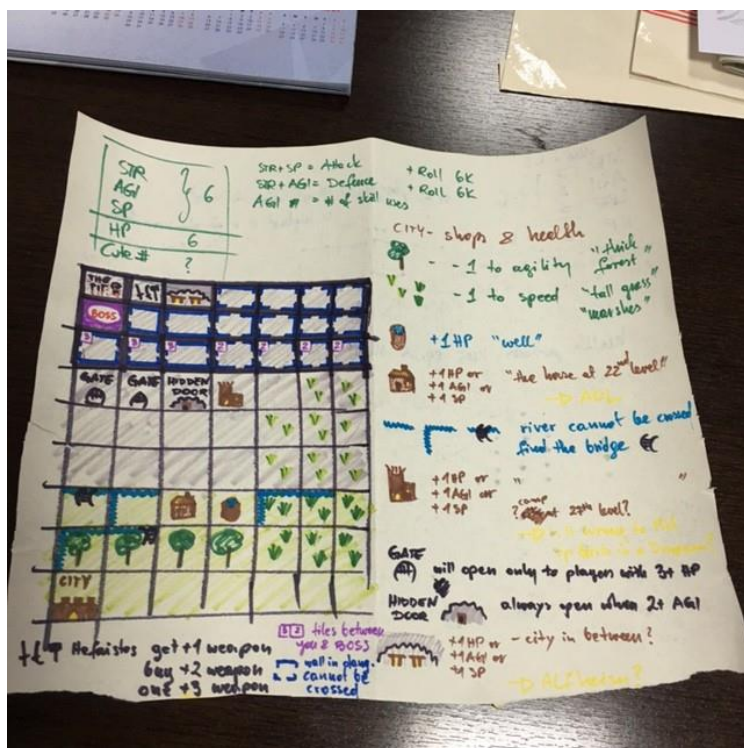 STR
AGI } 6
SP
HP 6
Cute # ?
STR+SP = Attack + Roll 6K
STR+AGI = Defence + Roll 6K
AGI # = # of skill uses
CITY - shops & health
- -1 to agility "thick forest"
- -1 to speed "tall grass"
"marshes"
+1HP "well"
+1HP or
+1AGI or
+1 SP
"the house at 22nd level"
river cannot be crossed
find the bridge
+1HP or
+1AGI or
+1 SP
" "
camp
? at 27th level?
GATE
will open only to players with 3+ HP
HIDDEN
DOOR
always open when 2+ AGI
+1HP or
+1AGI or
+1 SP
- city in between?
THE
BOSS
3 3 3 2 2 2 2
GATE GATE HIDDEN
DOOR
CITY
3 2 tiles between
you & BOSS
wall in
cannot be
crossed
get +1 weapon
buy +2 weapon
one +3 weapon